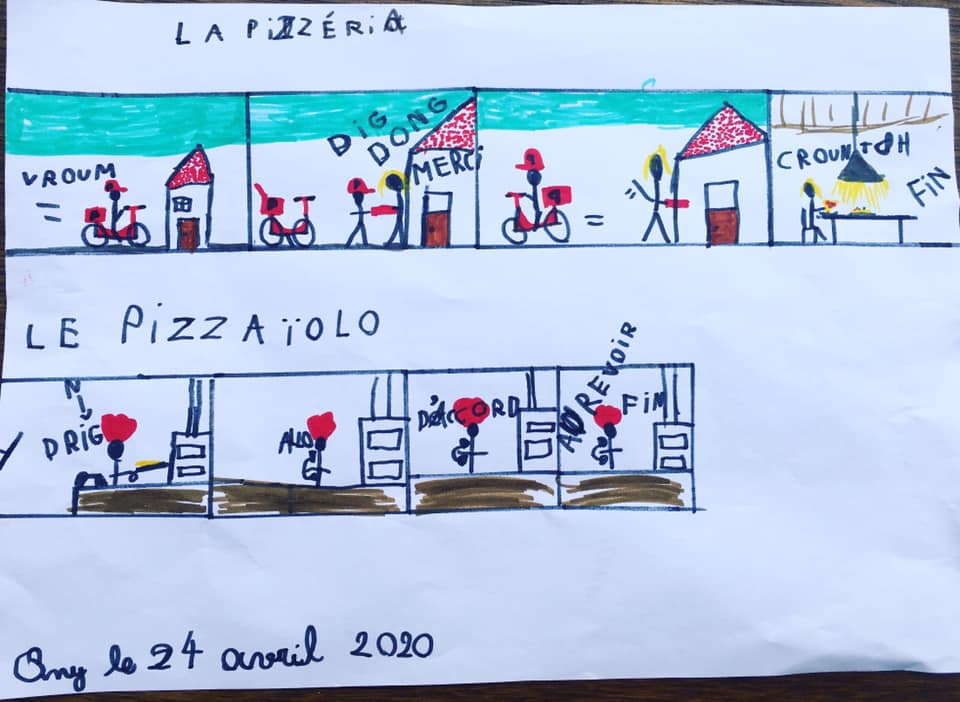 LA PIZZÉRIA
VROUM
DIG
DONG
MERCI
CROUNTCH
FIN
LE PIZZAÏOLO
DRIG
N
ALLO
D'ACCORD
AU REVOIR
FIN
Ony le 24 avril 2020